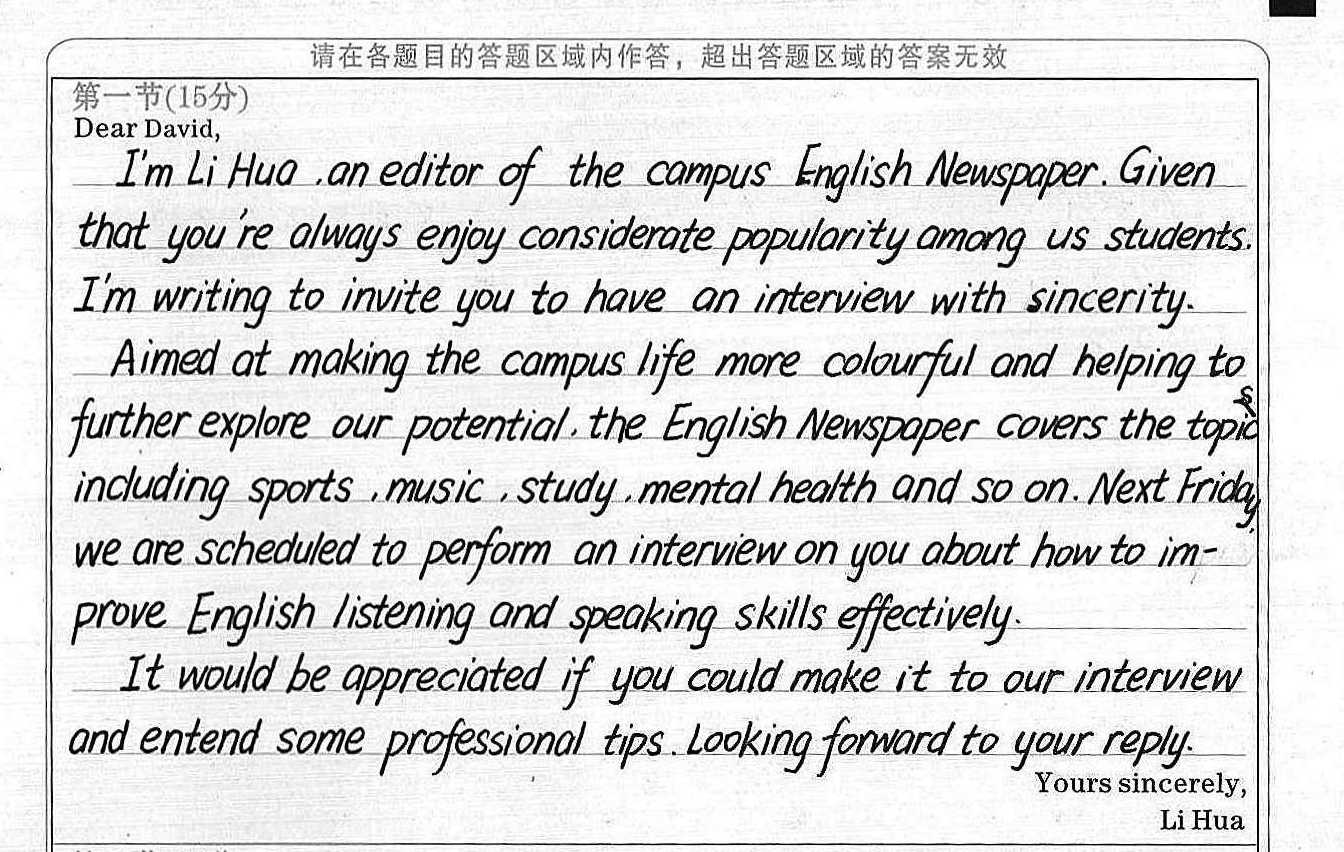 请在各题目的答题区域内作答，超出答题区域的答案无效
第一节(15分)
Dear David,
I'm Li Hua, an editor of the campus English Newspaper. Given
that you're always enjoy considerate popularity among us students.
I'm writing to invite you to have an interview with sincerity.
Aimed at making the campus life more colourful and helping to
further explore our potential, the English Newspaper covers the topics
including sports, music, study, mental health and so on. Next Friday,
we are scheduled to perform an interview on you about how to im-
prove English listening and speaking skills effectively.
It would be appreciated if you could make it to our interview
and entend some professional tips. Looking forward to your reply.
Yours sincerely,
Li Hua